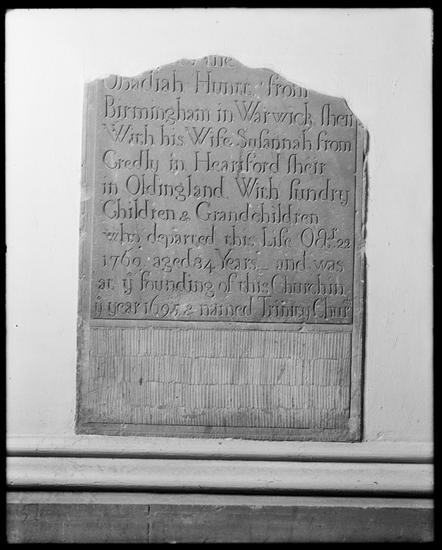 the
Obadiah Hunt from
Birmingham in Warwick ſheir
With his Wife Suſannah from
Credly in Heariford ſheir
in Oldingland With ſundry
Children & Grandchildren
who departed this Life Octr. 22
1760 aged 84 Years and was
at ẙ founding of this Church in
ẙ year 1695 & named Trinity Chur